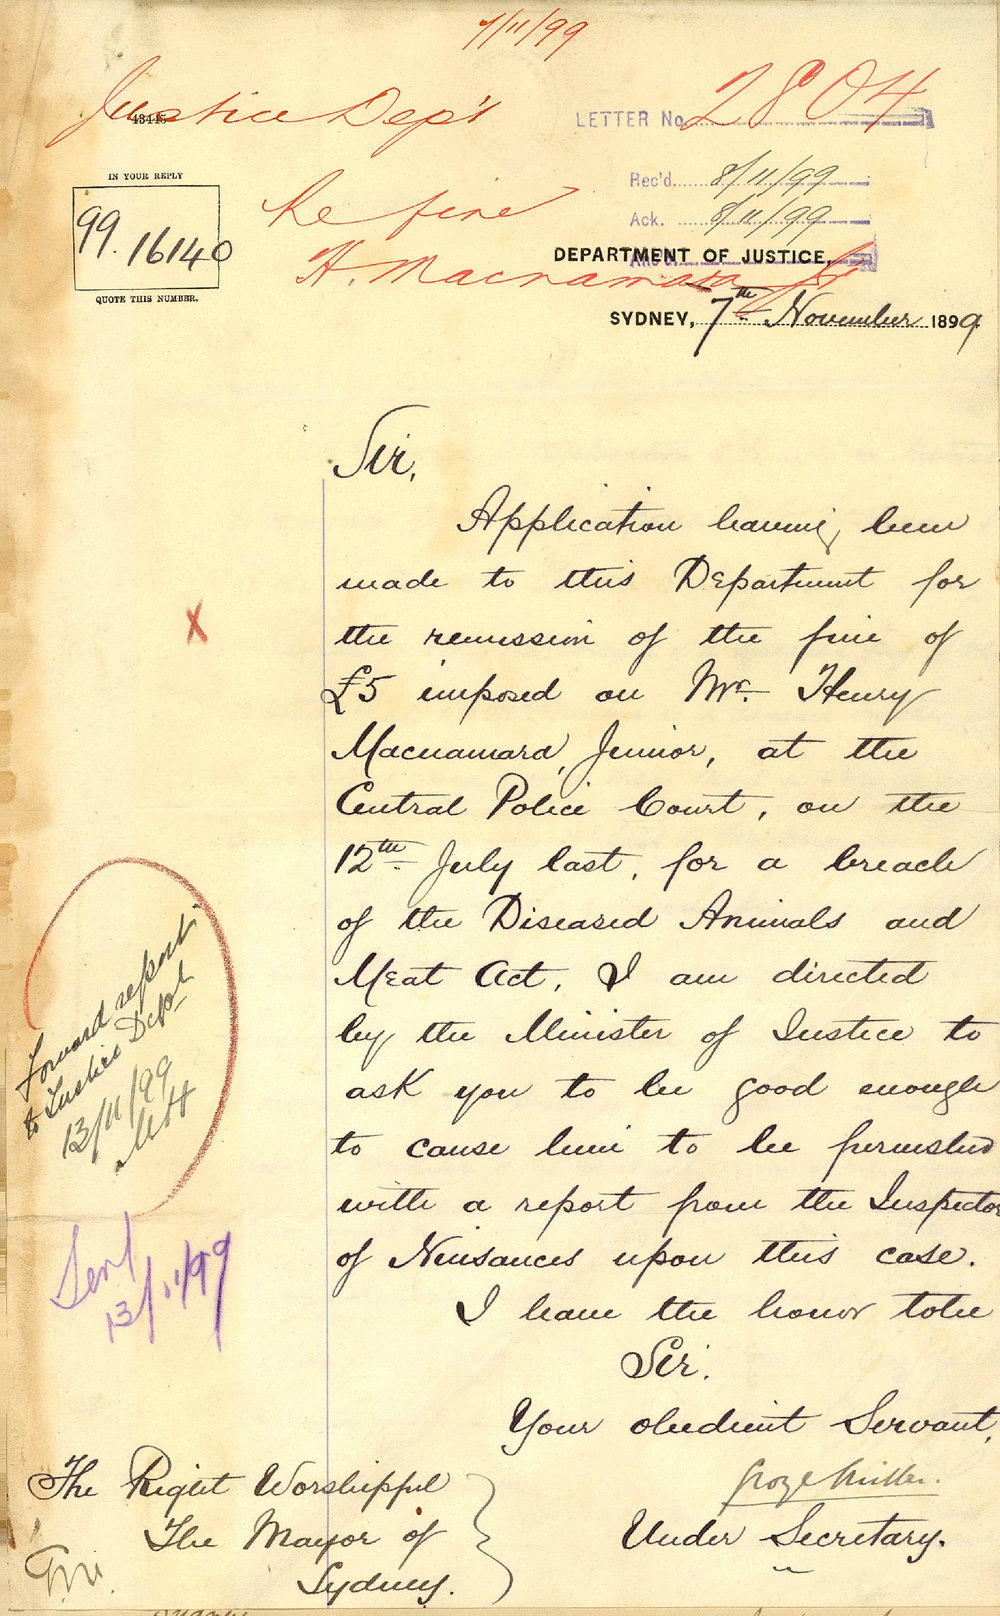 7/11/99
Justice Dep't
43445
LETTER No. 2804
IN YOUR REPLY
99.16140
QUOTE THIS NUMBER.
Re fine
H. Macnamara Jr
Rec'd. 8/11/99
Ack. 8/11/99
DEPARTMENT OF JUSTICE,
SYDNEY, 7th November 1899.
Sir,
Application having been
made to this Department for
the remission of the fine of
£5 imposed on Mr. Henry
Macnamara, Junior, at the
Central Police Court, on the
12th July last, for a breach
of the Diseased Animals and
Meat Act, I am directed
by the Minister of Justice to
ask you to be good enough
to cause him to be furnished
with a report from the Inspector
of Nuisances upon this case.
I have the honor to be
Sir.
Your obedient Servant,
George Miller.
Under Secretary.
X
Forward report
to Justice Dept
13/11/99
Sent
13/11/99
The Right Worshipful
The Mayor of
Sydney.